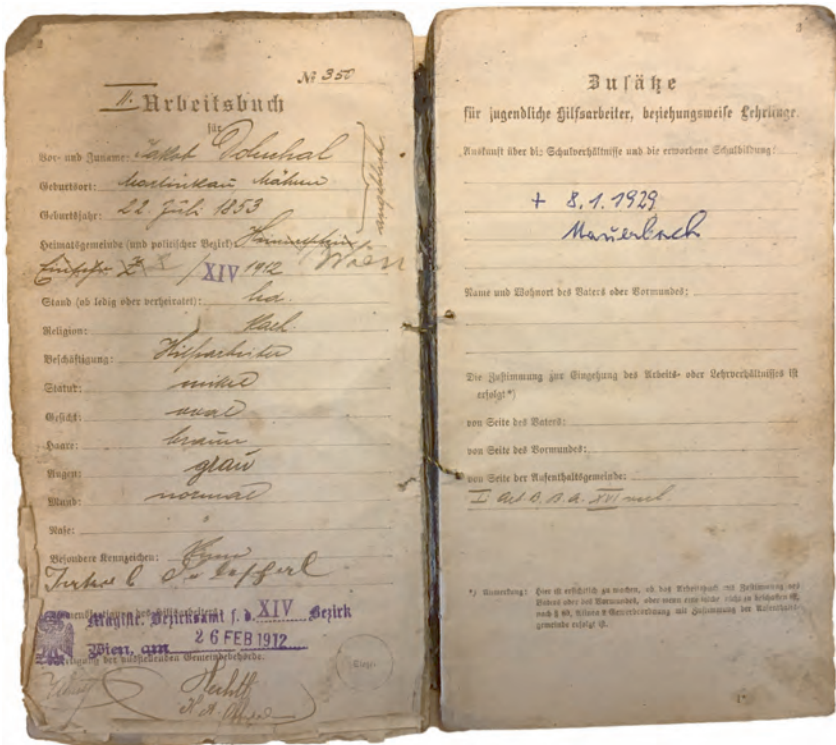 2
№ 350
II. Arbeitsbuch
für
Vor- und Zuname: Jakob Doleschal
Geburtsort: Martinkau Mähren
Geburtsjahr: 22. Juli 1853
Heimatsgemeinde (und politischer Bezirk):
Wien
XIV 1912
Stand (ob ledig oder verheiratet): led.
Religion: kath.
Beschäftigung: Hilfsarbeiter
Statur: mittel
Gesicht: oval
Haare: braun
Augen: grau
Mund: normal
Nase: "
Besondere Kennzeichen: Keine
des Hilfsarbeiters
Magistr. Bezirksamt f. d. XIV Bezirk
Wien, am 26 FEB 1912
der ausstellenden Gemeindebehörde.
3
Zusätze
für jugendliche Hilfsarbeiter, beziehungsweise Lehrlinge.
Auskunft über die Schulverhältnisse und die erworbene Schulbildung:
+ 8.1.1929
Mauerbach
Name und Wohnort des Vaters oder Vormundes:
Die Zustimmung zur Eingehung des Arbeits- oder Lehrverhältnisses ist
erfolgt*)
von Seite des Vaters:
von Seite des Vormundes:
von Seite der Aufenthaltsgemeinde:
XVI
*) Anmerkung: Hier ist ersichtlich zu machen, ob das Arbeitsbuch mit Zustimmung des
Vaters oder des Vormundes, oder wenn eine solche nicht zu beschaffen ist,
nach § 80, Alinea Gewerbeordnung mit Zustimmung der Aufenthalts-
gemeinde erfolgt ist.
1*